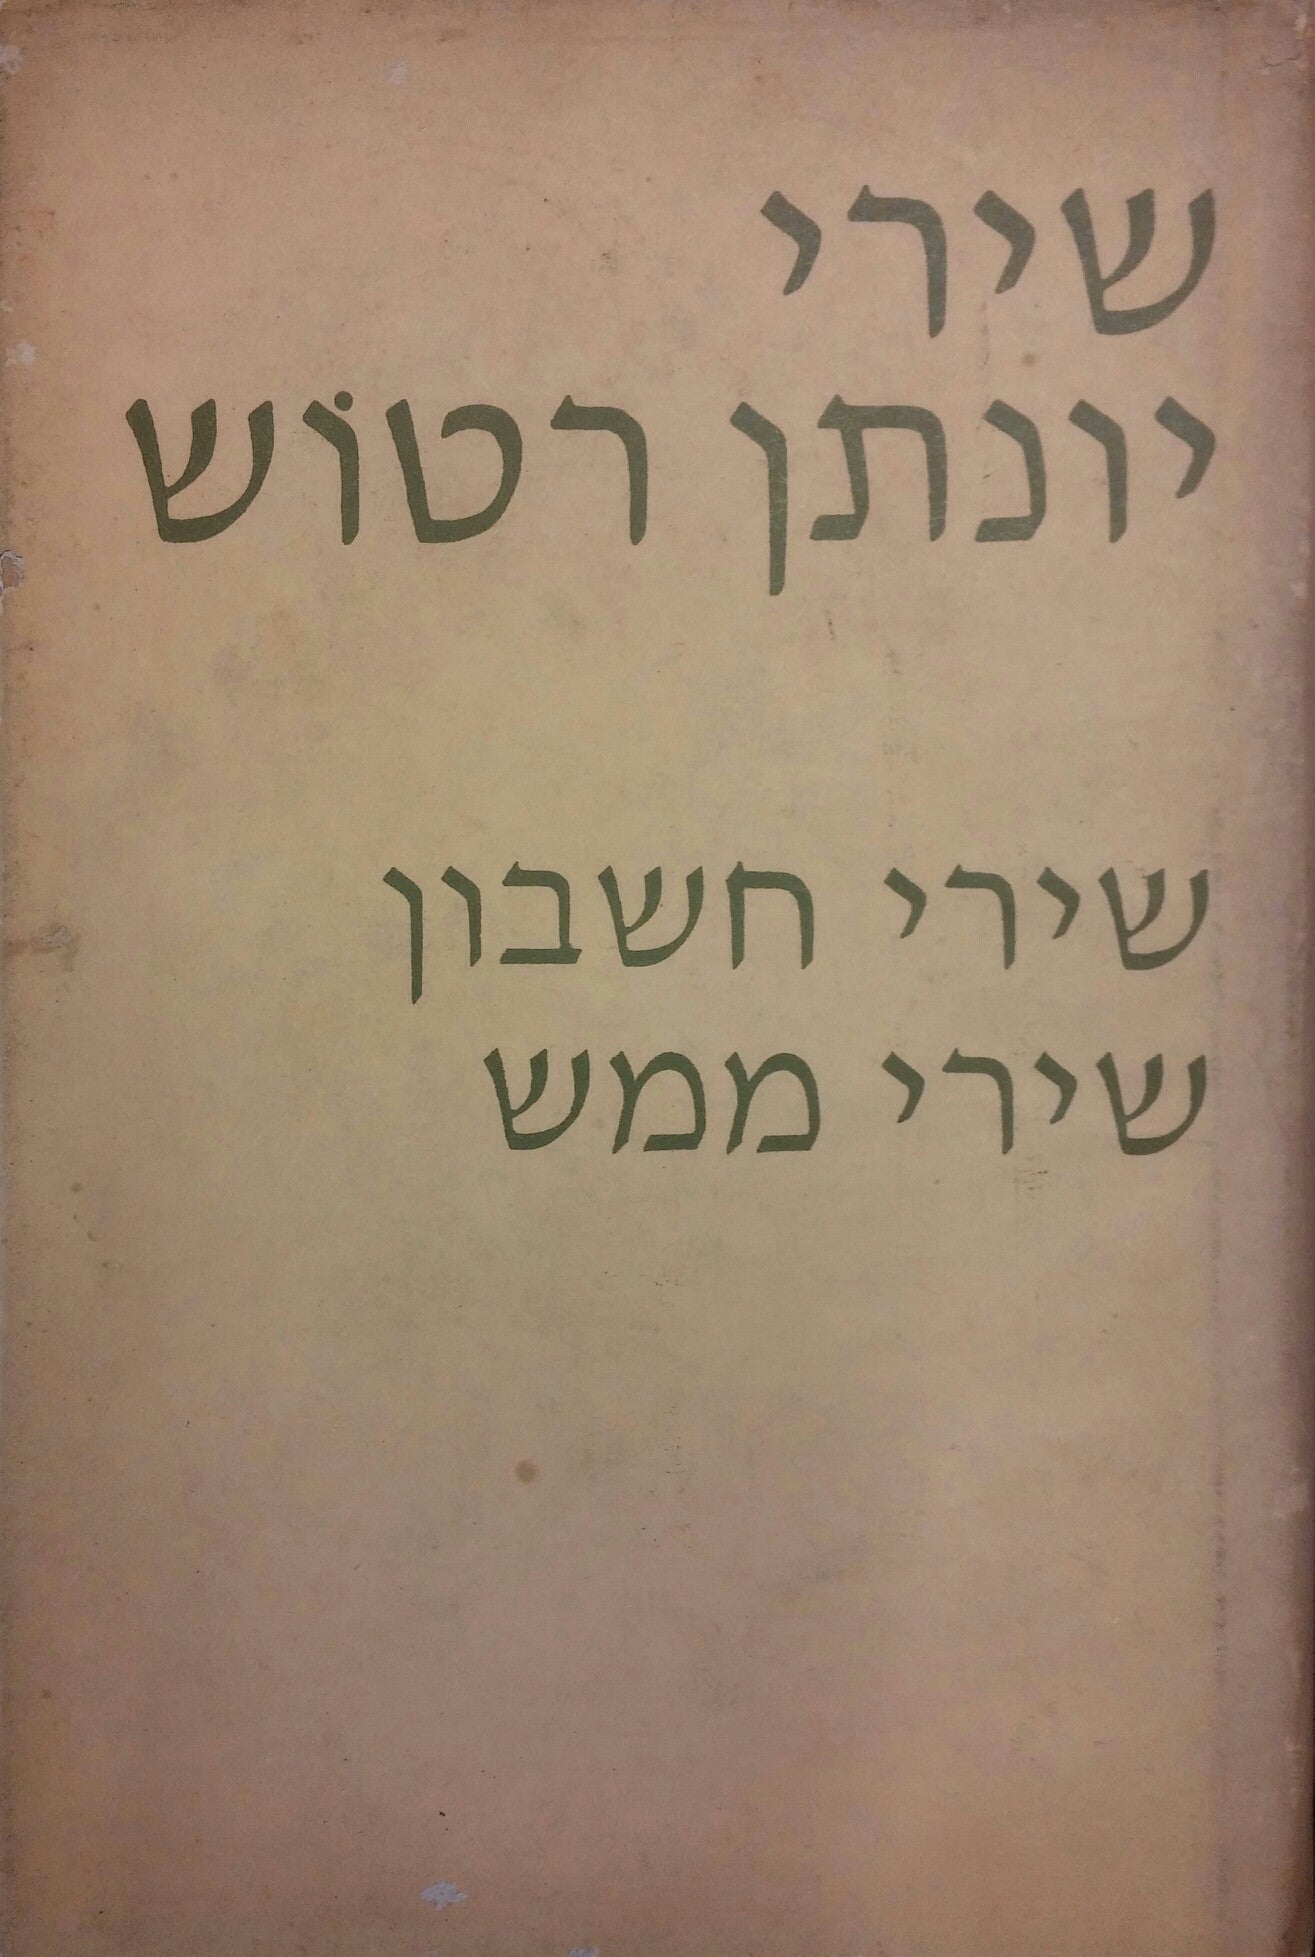 שירי
יונתן רטוֹש
שירי חשבון
שירי ממש